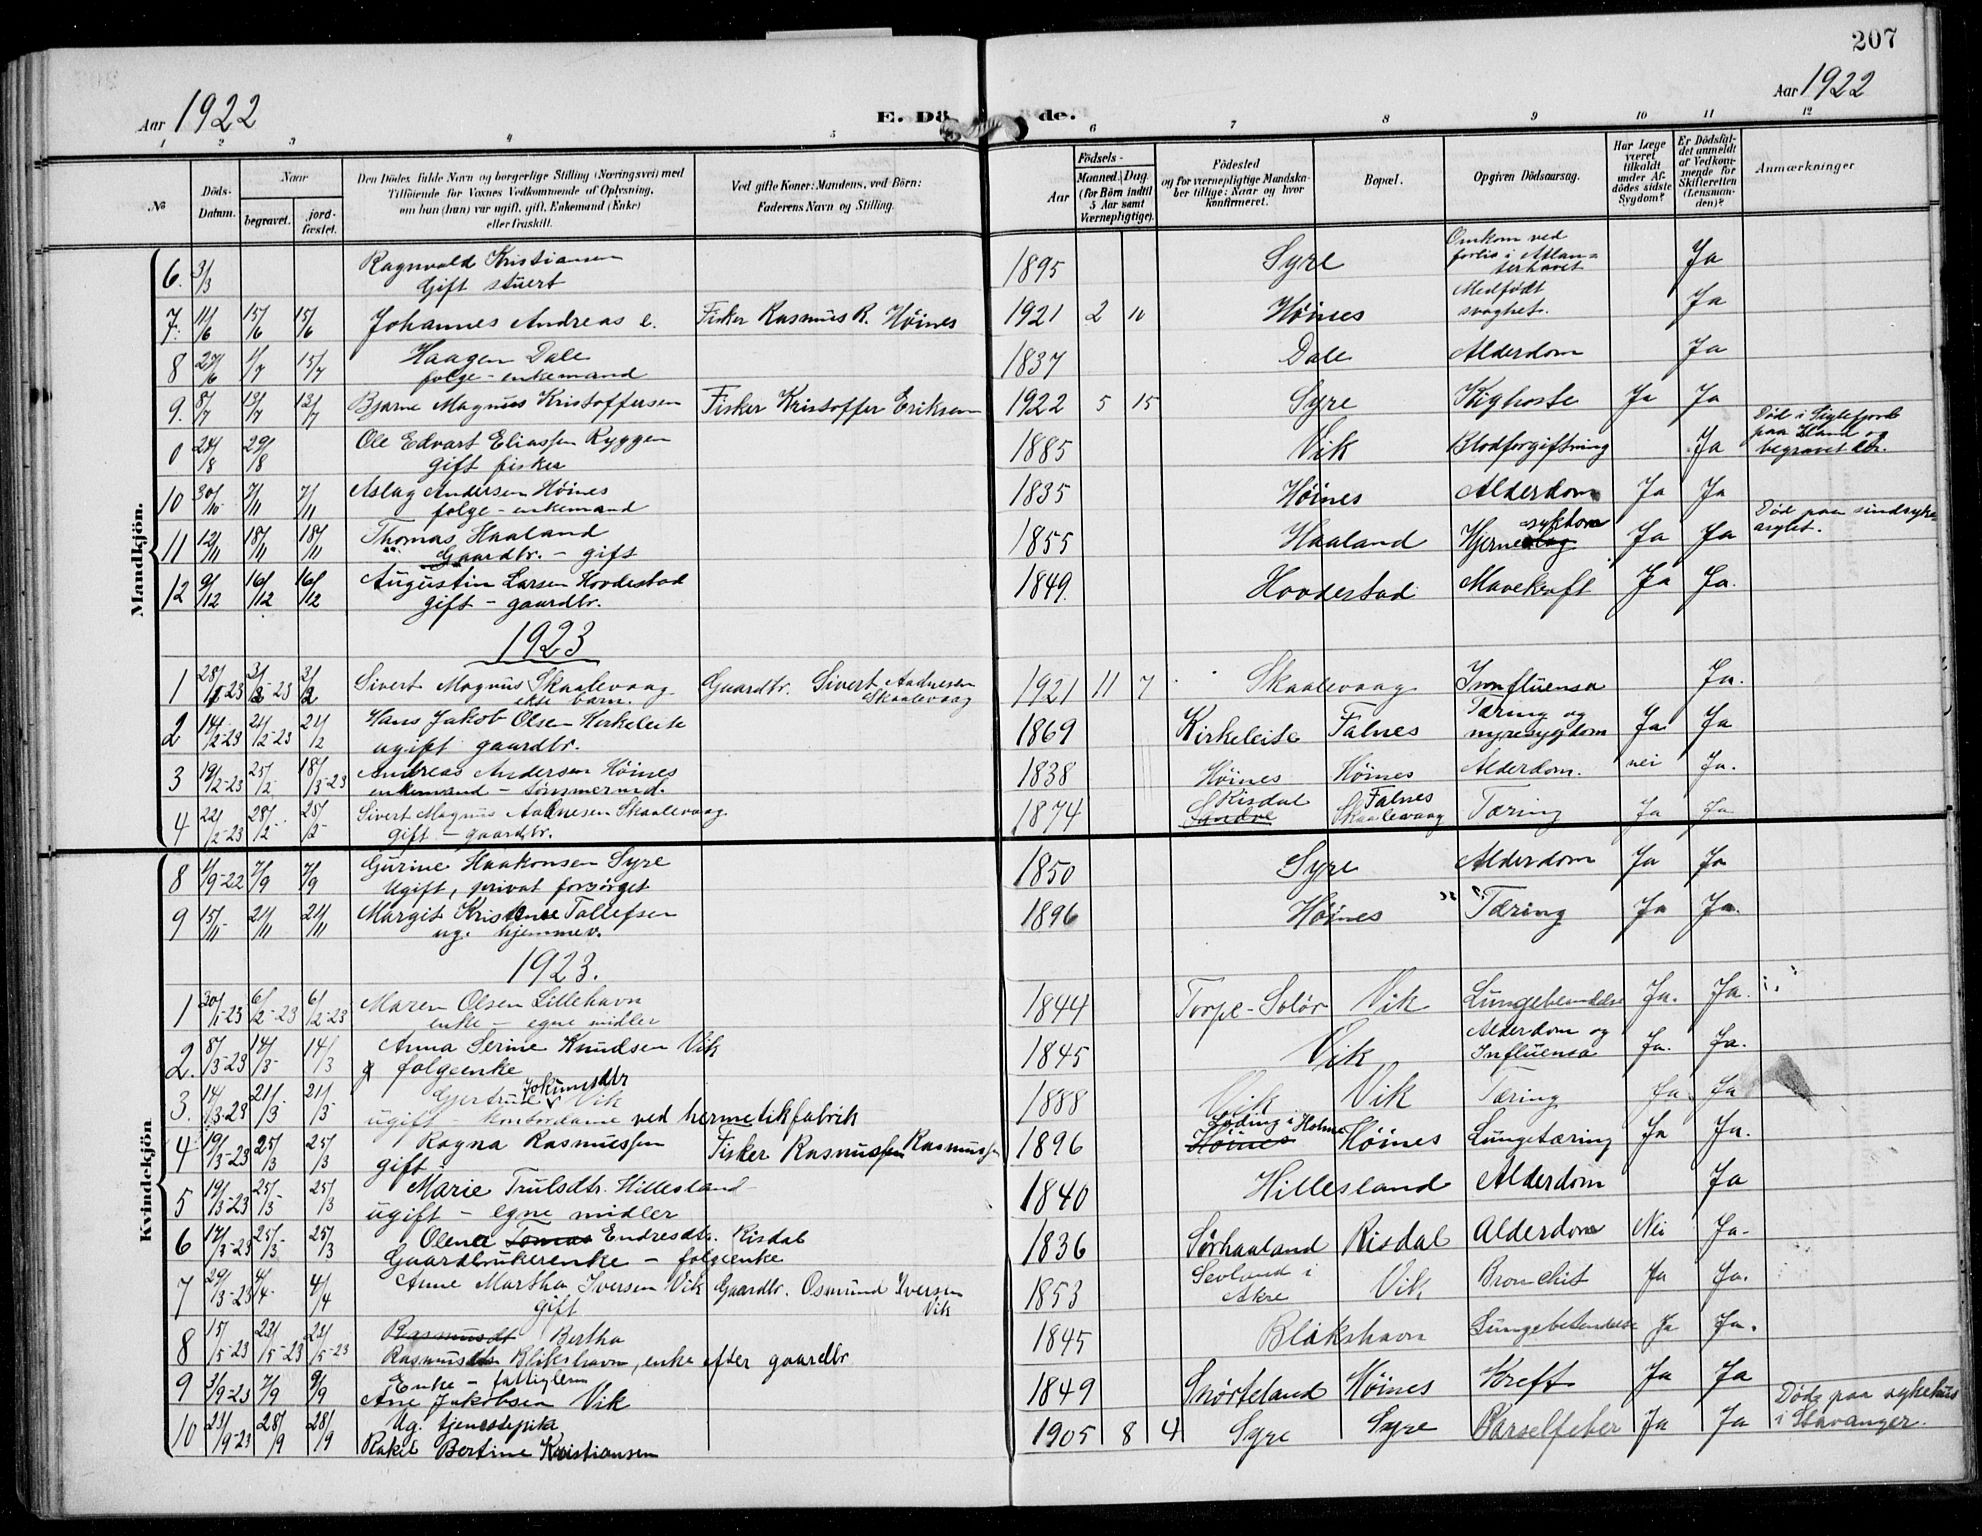 207
Aar 1922
E. Dö de.
Aar 1922
1 2 3 4 5 6 7 8 9 10 11 12
No
Döds-Datum.
Naar
begravet.
jord-fæstet.
Den Dödes fulde Navn og borgerlige Stilling (Næringsvei) med
Tilföiende for Voxnes Vedkommende af Oplysning,
om han (hun) var ugift, gift, Enkemand (Enke)
eller fraskilt.
Ved gifte Koner: Mandens, ved Börn:
Faderens Navn og Stilling.
Födsels-
Aar
Maaned. Dag
(for Börn indtil
5 Aar samt
Værnepligtige).
Födested
og for værnepligtige Mandska-
ber tillige: Naar og hvor
konfirmeret.
Bopæl.
Opgiven Dödsaarsag.
Har Læge
været
tilkaldt
under Af-
dödes sidste
Sygdom?
Er Dödsfal-
det anmeldt
af Vedkom-
mende for
Skifteretten
(Lensman-
den)?
Anmærkninger
Mandkjön.
6. 3/3 Ragnvald Kristiansen 1895 Syre Omkom ved forlis i Atlan= terhavet Ja
Gift stuert
7. 11/6 15/6 15/6 Johannes Andreas e. Fisker Rasmus R. Höines 1921 2 10 Höines Medfödt svaghet. Ja
8 27/6 1/7 15/7 Haagen Dale 1837 Dale Alderdom Ja
folge - enkemand
9. 8/7 13/7 13/7 Bjarne Magnus Kristoffersen Fisker Kristoffer Eriksen 1922 5 15 Syre Kighoste Ja Ja
0 24/8 29/8 Ole Edvart Eliassen Ryggen 1885 Vik Blodforgiftning Ja Död i Siglefjord paa Island og begravet der.
gift fisker
10 30/10 7/11 7/11 Aslag Andersen Höines 1835 Höines Alderdom Ja Ja
folge - enkemand
11 12/11 18/11 18/11 Thomas Haaland 1855 Haaland Hjerneslag sykdom Ja Ja Död paa sindsyke= asylet.
Gaardbr. - gift
12 9/12 16/12 16/12 Augustin Larsen Hovdestad 1849. Hovdestad Mavekræft Ja Ja.
gift - gaardbr.
1923
1 28/1-23 3/2-23 3/2 Sivert Magnus Skaalevaag Gaardbr. Sivert Aadnesen Skaalevaag 1921 11 7 Skaalevaag Influensa Ja.
ekte barn.
2 14/2-23 21/2-23 21/2 Hans Jakob Olsen Kirkeleite 1869 Kirkeleite Falnes Tæring og nyresygdom Ja Ja
ugift gaardbr.
3 19/2-23 25/2 18/3-23 Andreas Andersen Höines 1838 Höines Höines Alderdom. nei Ja.
enkemand - tömmermd.
4 22/2-23 28/2 25/2 Sivert Magnus Aadnesen Skaalevaag 1874 Risdal Sandve Falnes Skaalevaag Tæring Ja Ja
gift - gaardbr.
Kvindekjön
8 1/9-22 7/9 7/9 Gurine Haakonsen Syre 1850 Syre Alderdom Ja Ja
Ugift, privat forsörget
9 15/11 21/11 21/11 Margit Kristine Tollefsen 1896 Höines Tæring Ja Ja.
ug. hjemmev.
1923.
1 30/1-23 6/2-23 6/2-23 Maren Olsen Lillehavn 1844 Torpe-Solör Vik Lungebetændelse Ja. Ja.
enke - egne midler
2. 8/3-23 14/3 14/3 Anna Serine Knudsen Vik 1845 Vik Alderdom og Influensa Ja. Ja.
folgeenke
3. 14/3-23 21/3 21/3 Gjertrud Jokumsdtr Vik 1888 Vik Vik Tæring Ja. Ja
ugift - kontordame ved hermetikfabrik
4 19/3-23 25/3 25/3 Ragna Rasmussen Fisker Rasmus Rasmussen 1896 Höines Höines Lungetæring Ja Ja.
gift
5 19/3-23 25/3 25/3 Marie Trulsdtr. Hillesland 1840 Hillesland Alderdom Ja
ugift - egne midler
6 17/3-23 25/3 25/3 Olene Tomas Endresdtr. Risdal 1836 Sörhaaland Risdal Alderdom Nei Ja.
Gaardbrukerenke - folgeenke
7 29/3-23 4/4 4/4 Anne Martha Iversen Vik Gaardbr. Osmund Iversen Vik 1853 Sevland i Akre Vik Bronchit Ja Ja.
gift
8 15/5-23 22/5-23 22/5-23 Rasmusdt Bertha 1845 Blikshavn Lungebetendelse Ja Ja.
Rasmusdtr Blikshavn, enke efter gaardbr
9 3/9-23 7/9 9/9 Enke - fattiglem 1849 Snörteland Höines Kreft Ja Ja
Ane Jakobsen Vik
10 23/9-23 28/9 28/9 Ug. tjenestepike 1905 8 4 Syre Syre Barselfeber Ja Ja Döde paa sykehus i Stavanger.
Rakel Bertine Kristiansen